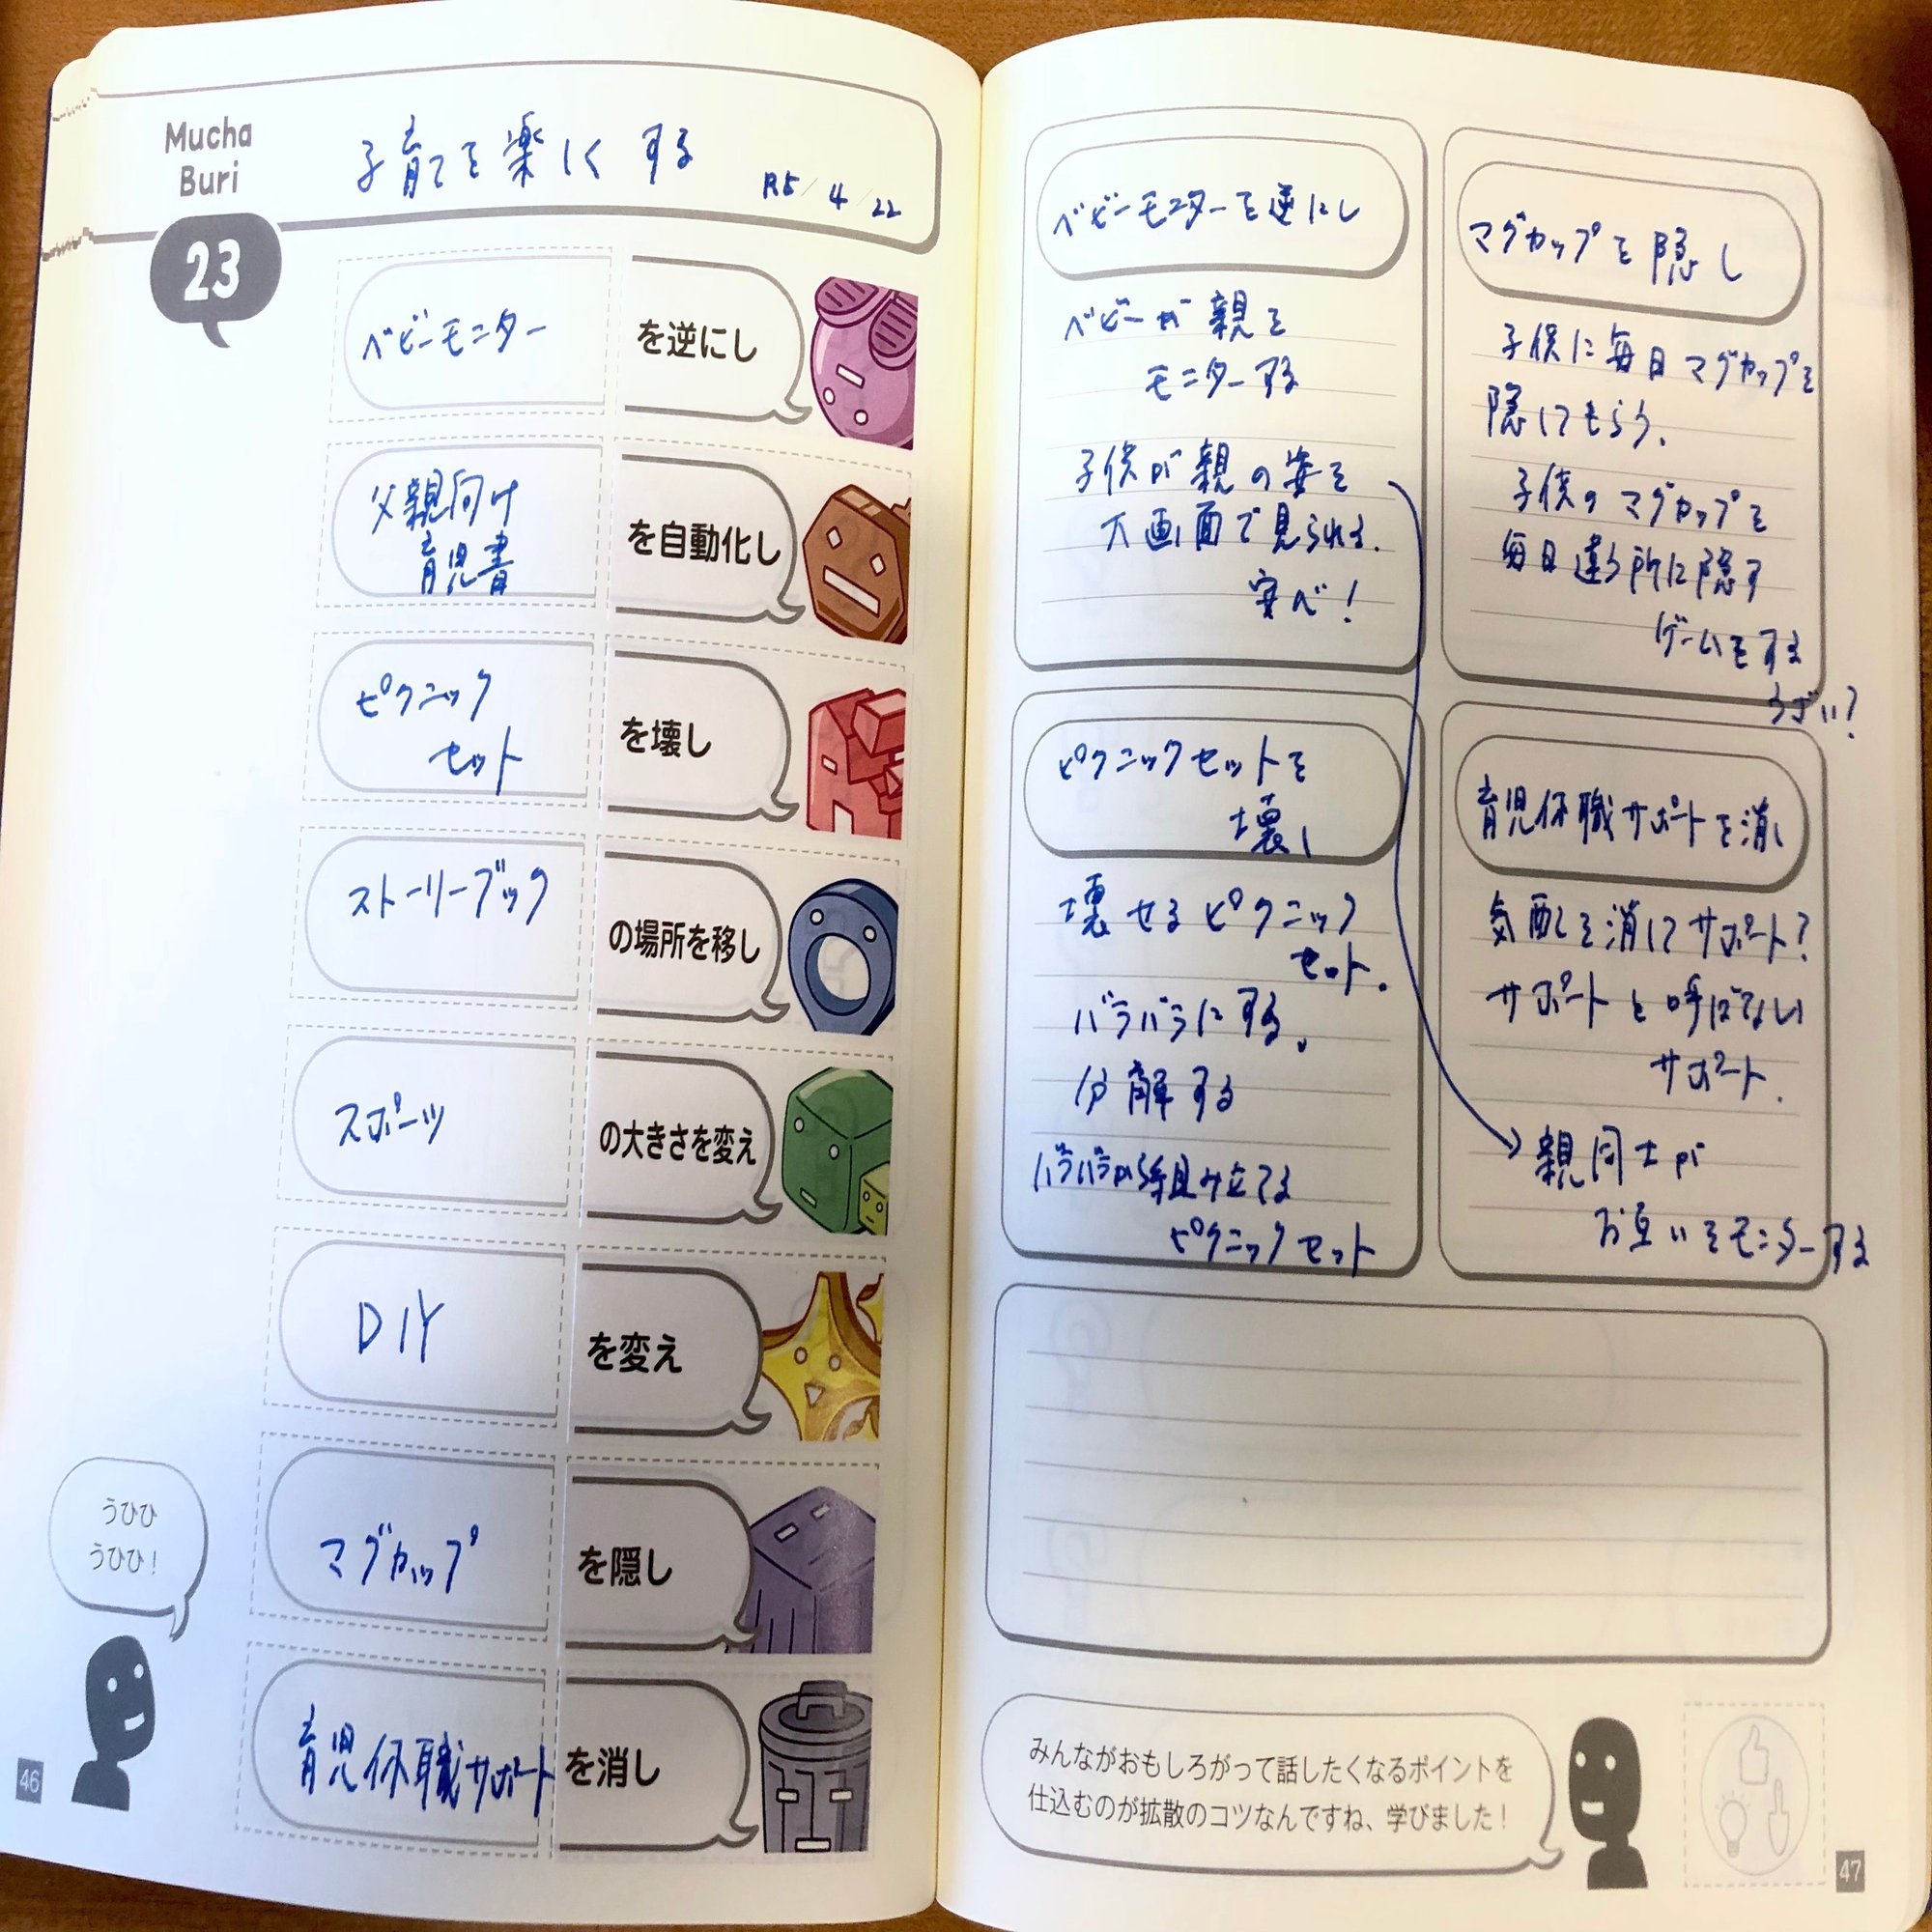 Mucha
Buri
子育てを楽しくする
R5/4/22
23
ベビーモニター
を逆にし
父親向け
育児書
を自動化し
ピクニック
セット
を壊し
ストーリーブック
の場所を移し
スポーツ
の大きさを変え
DIY
を変え
マグカップ
を隠し
育児休職サポート
を消し
うひひ
うひひ!
46
ベビーモニターを逆にし
ベビーが親を
モニターする
子供が親の姿を
大画面で見られる.
安べ!
マグカップを隠し
子供に毎日マグカップを
隠してもらう.
子供のマグカップを
毎日違う所に隠す
ゲームをする
うざい?
ピクニックセットを
壊し
壊せるピクニック
セット.
バラバラにする.
分解する
バラバラから組み立てる
ピクニックセット
育児休職サポートを消し
気配を消してサポート?
サポートと呼ばない
サポート.
親同士が
お互いをモニターする
みんながおもしろがって話したくなるポイントを
仕込むのが拡散のコツなんですね、学びました!
47